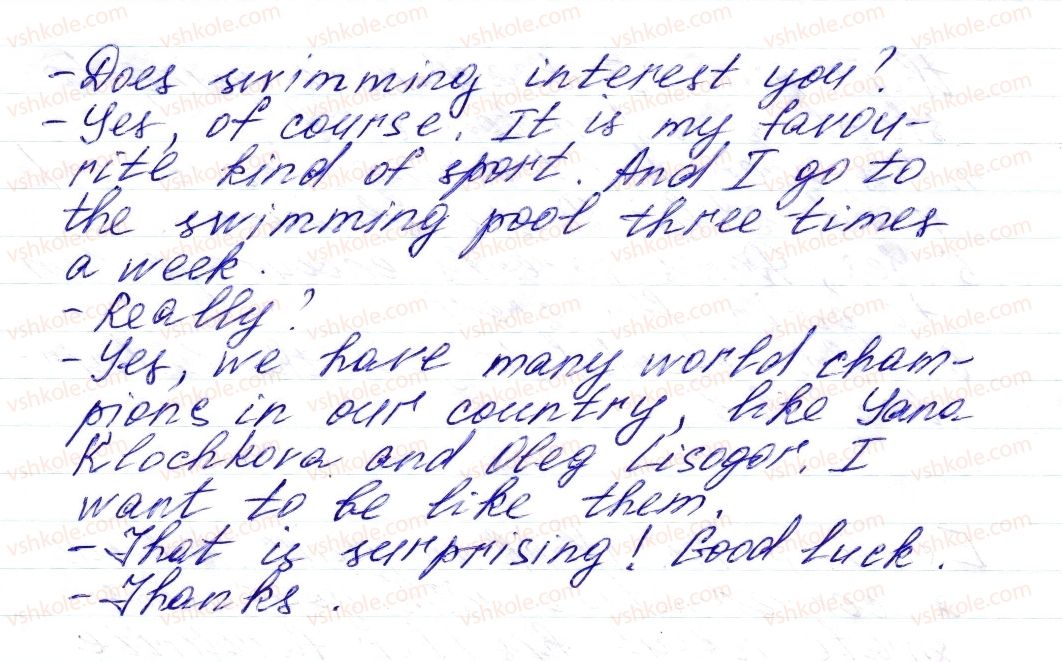 - Does swimming interest you?
- Yes, of course. It is my favou-
rite kind of sport. And I go to
the swimming pool three times
a week.
- Really?
- Yes, we have many world cham-
pions in our country, like Yana
Klochkova and Oleg Lisogor. I
want to be like them.
- That is surprising! Good luck.
- Thanks.